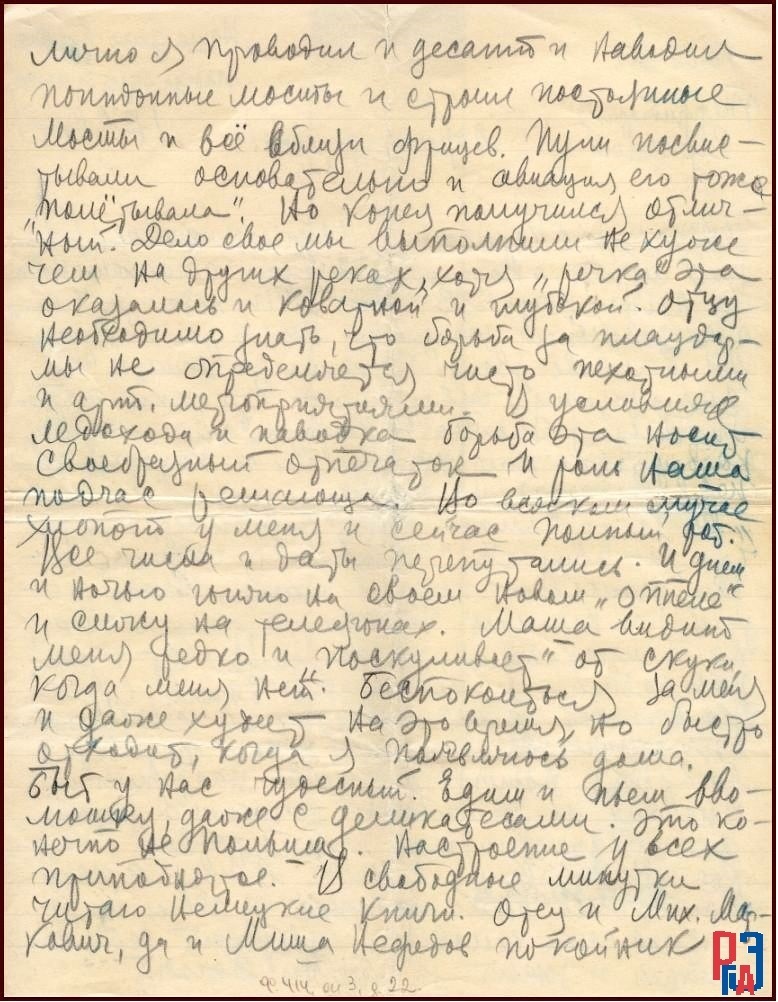 лично я проводил и десант и наводил
понтонные мосты и строил постоянные
мосты и всё вблизи фрицев. Пули посвис-
тывали основательно и авиация его тоже
"полётывала". Но конец получился отлич-
ный. Дело свое мы выполнили не хуже
чем на других реках, хотя "речка" эта
оказалась и коварной и глубокой. Отцу
необходимо знать, что борьба за плацдар-
мы не определяется чисто пехотными
и арт. мероприятиями. В условиях
ледохода и паводка борьба эта носит
своебразный отпечаток и роль наша
подчас решающа. Во всяком случае
хлопот у меня и сейчас полный рот.
Все числа и даты перепутались. И днем
и ночью гоняю на своем новом "Оппеле"
и сижу на телефонах. Маша видит
меня редко и "поскуливает" от скуки,
когда меня нет. Беспокоиться за меня
и даже худеет на это время, но быстро
отходит, когда я появляюсь дома.
Быт у нас чудесный. Едим и пьем вво-
лошку, даже с деликатесами. Это ко-
нечно не Польша. Настроение у всех
приподнятое. В свободные минутки
читаю немецкие книги. Отец и Мих. Мар-
кович, да и Миша Нефедов покойник
ф. 414, оп 3, д. 22.
РГАЭ